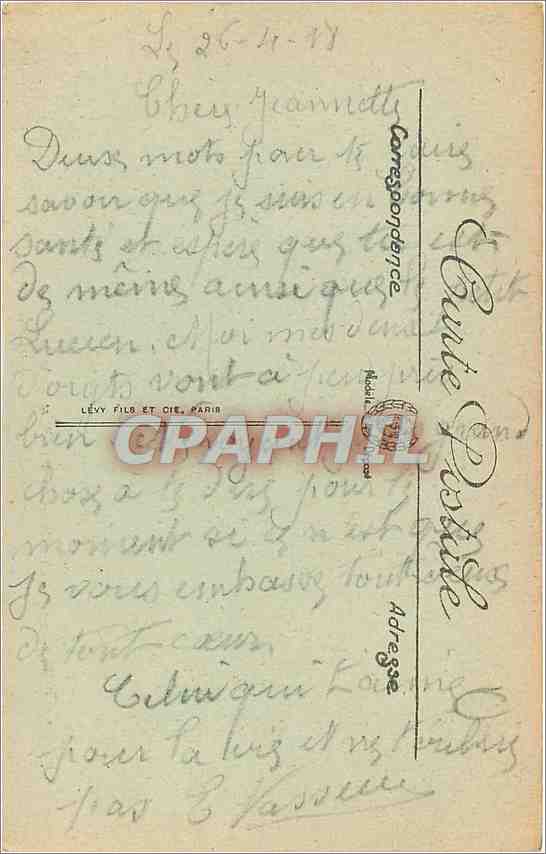 Le 26-4-18
Chère Jeannette
Deux mots pour te faire
savoir que je suis en bonne
santé et espère que toi est
de même ainsi que le petit
Lucien. et moi mes deux
doigts vont à peu près
bien grand
chose a te dire pour le
moment si ce n'est que
Je vous embasse toutes
de tout cœur
Celui qui t'aime
pour la vie et ne t'oublie
pas E Vasseur
Carte Postale
Correspondance
Adresse
Modèle Déposé
LÉVY FILS ET CIE, PARIS
CPAPHIL